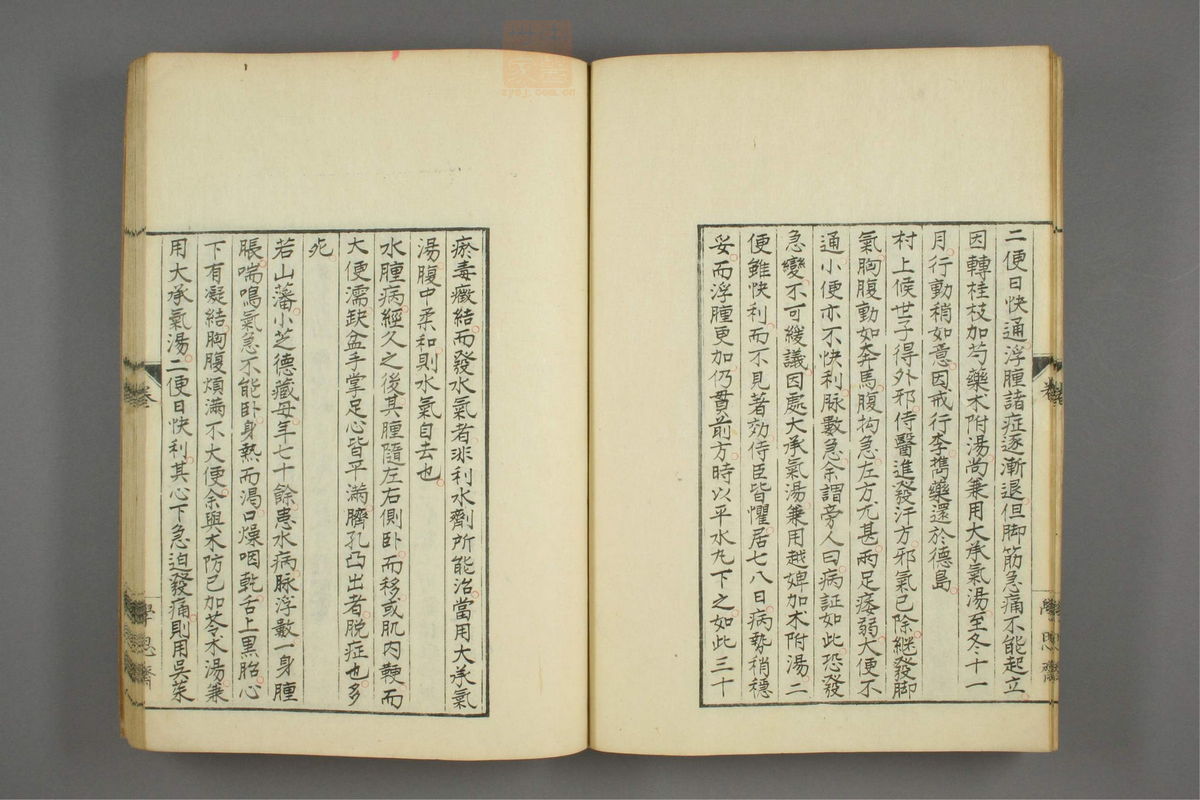 二便日快通浮腫諸症逐漸退但脚筋急痛不能起立
因轉桂枝加芍藥朮附湯尚兼用大承氣湯至冬十一
月行動稍如意因戒行李携藥還於德島
村上候世子得外邪侍醫進發汗方邪氣已除繼發脚
氣胸腹動如奔馬腹拘急左方尤甚兩足痿弱大便不
通小便亦不快利脉數急余謂旁人曰病証如此恐發
急變不可緩議因處大承氣湯兼用越婢加朮附湯二
便雖快利而不見著効侍臣皆懼居七八日病勢稍穩
妥而浮腫更加仍貫前方時以平水丸下之如此三十
瘀毒癥結而發水氣者非利水劑所能治當用大承氣
湯腹中柔和則水氣自去也
水腫病經久之後其腫隨左右側卧而移或肌肉鞕而
大便濡缺盆手掌足心皆平滿臍孔凸出者脱症也多
死
若山藩小芝德藏母年七十餘患水病脉浮數一身腫
脹喘鳴氣急不能卧身熱而渴口燥咽乾舌上黑胎心
下有凝結胸腹煩滿不大便余與木防已加苓朮湯兼
用大承氣湯二便日快利其心下急迫發痛則用吳茱
卷
學思齋